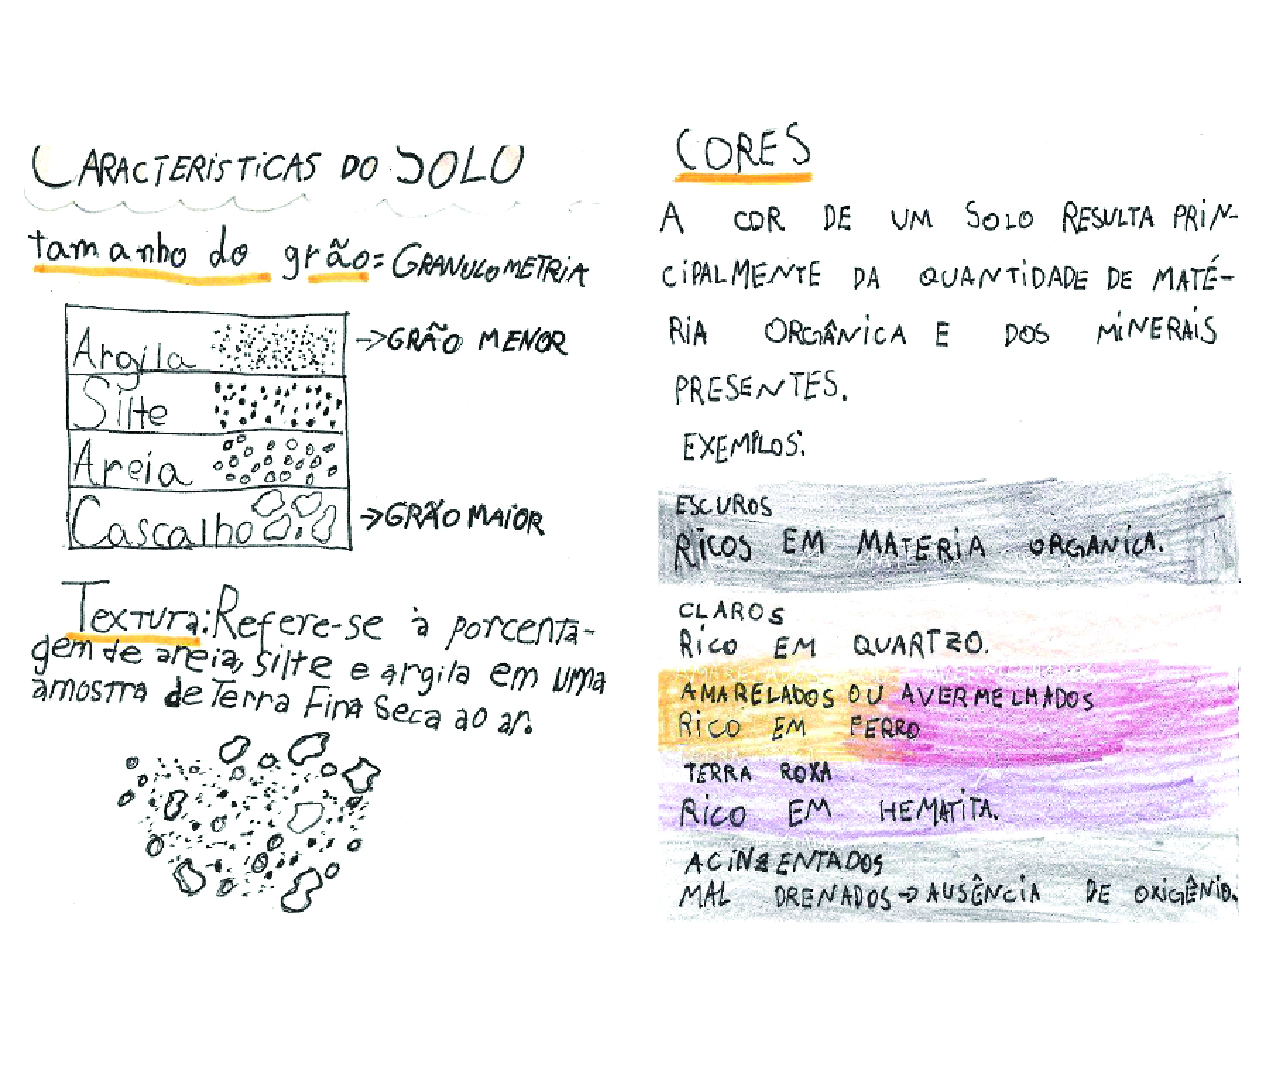 CARACTERISTICAS DO SOLO
tamanho do grão = GRANULOMETRIA
Argila → GRÃO MENOR
Silte
Areia
Cascalho → GRÃO MAIOR
Textura: Refere-se à porcenta-
gem de areia, silte e argila em uma
amostra de Terra Fina Seca ao ar.
CORES
A COR DE UM SOLO RESULTA PRIN-
CIPALMENTE DA QUANTIDADE DE MATÉ-
RIA ORGÂNICA E DOS MINERAIS
PRESENTES.
EXEMPLOS:
ESCUROS
RICOS EM MATERIA ORGANICA.
CLAROS
RICO EM QUARTZO.
AMARELADOS OU AVERMELHADOS
RICO EM FERRO
TERRA ROXA
RICO EM HEMATITA.
ACINZENTADOS
MAL DRENADOS → AUSÊNCIA DE OXIGÊNIO.